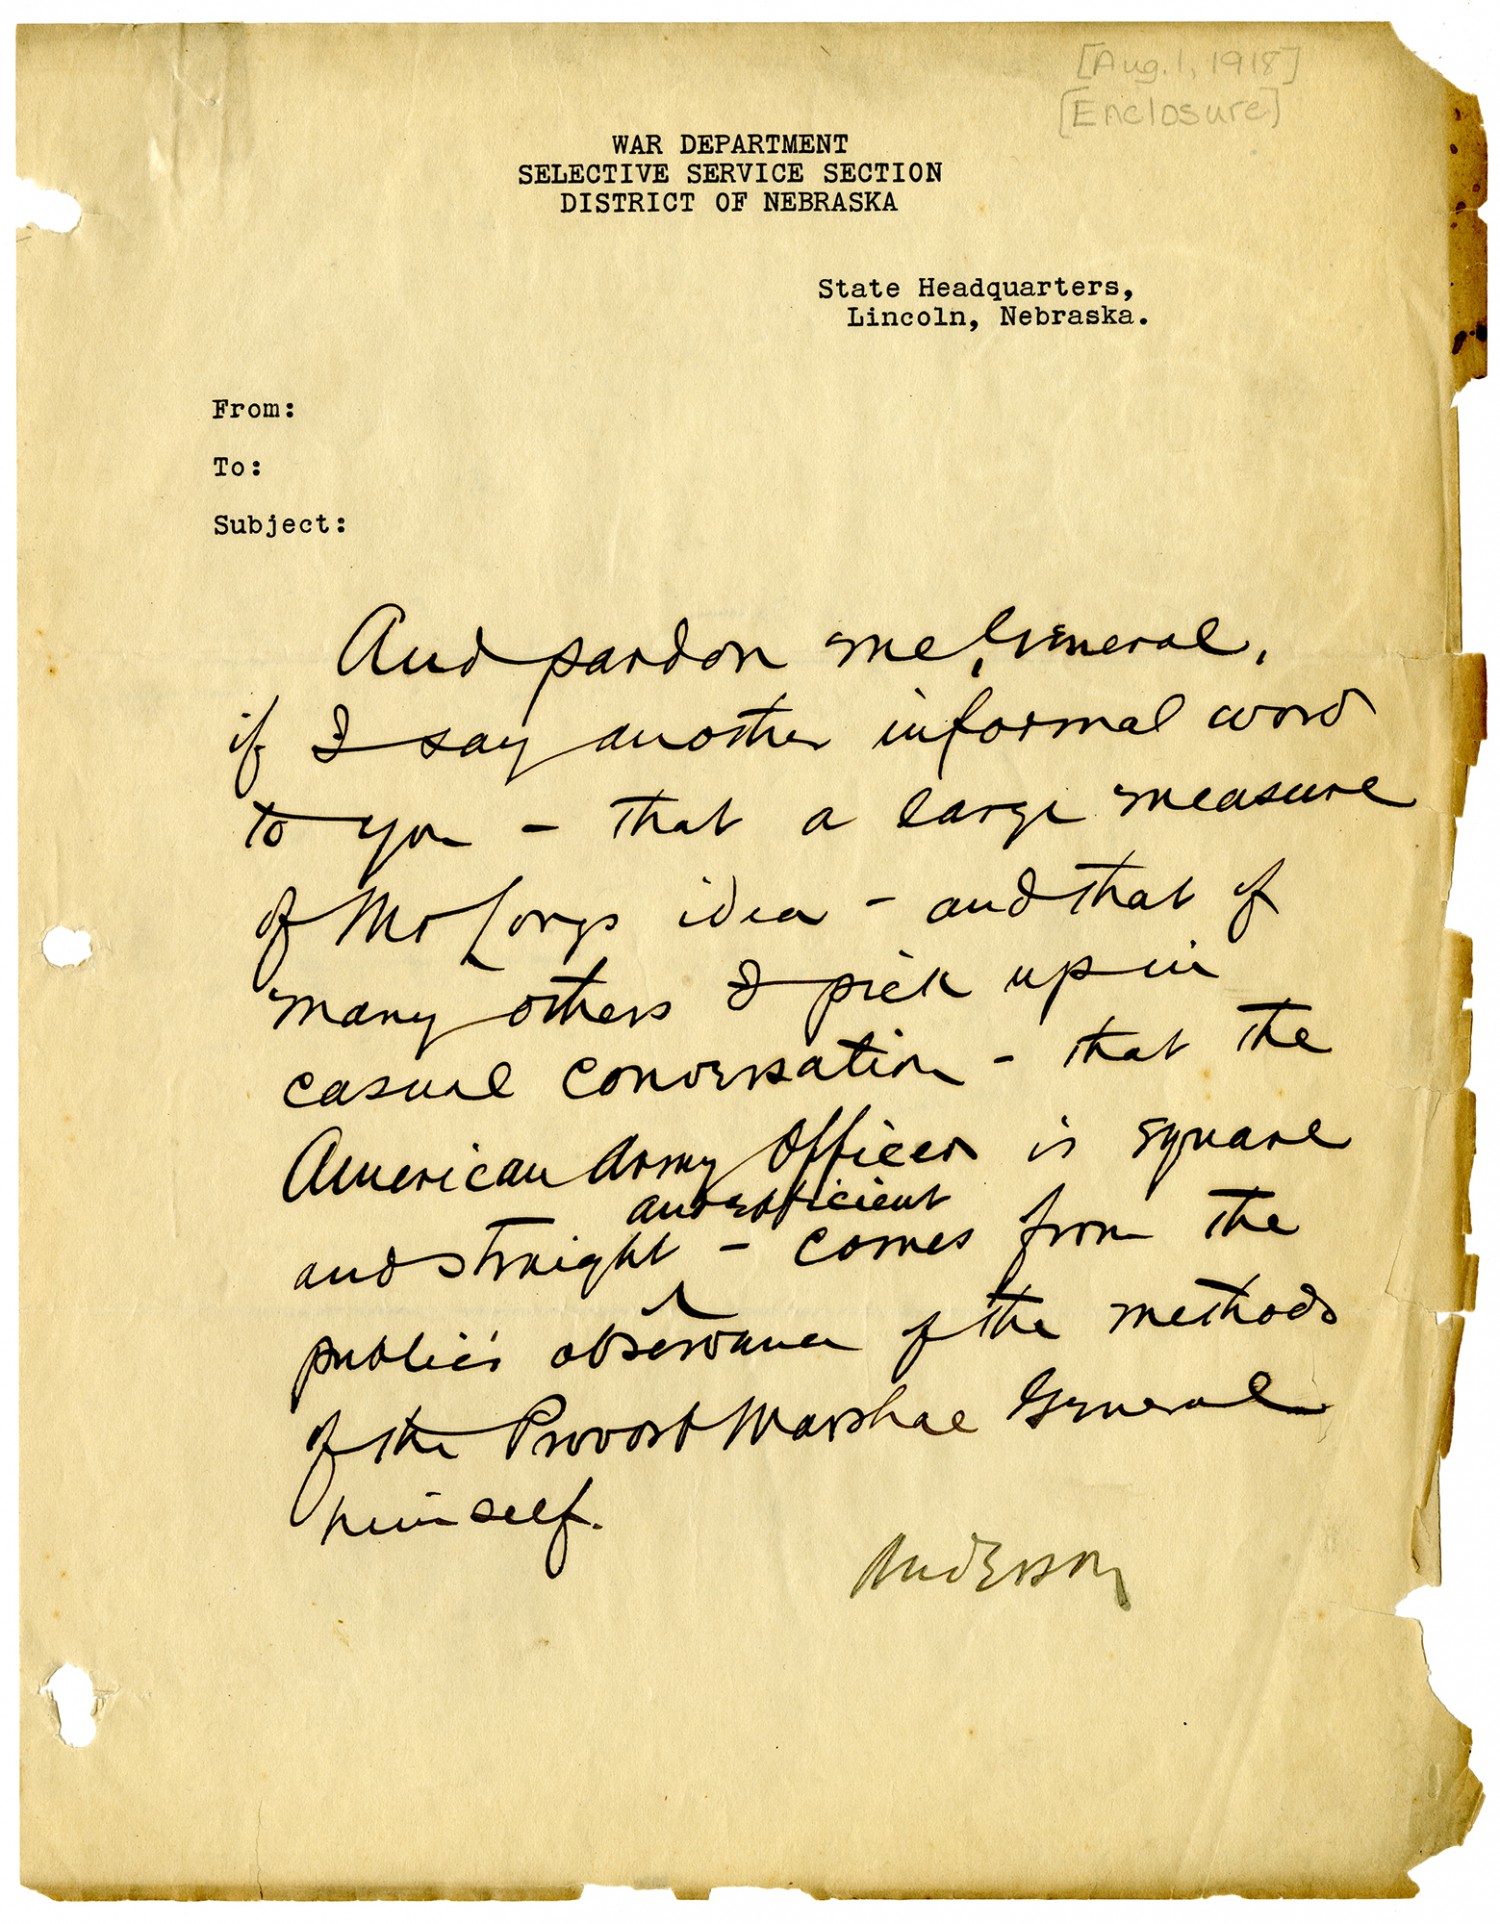 [Aug. 1, 1918]
[Enclosure]
WAR DEPARTMENT
SELECTIVE SERVICE SECTION
DISTRICT OF NEBRASKA
State Headquarters,
Lincoln, Nebraska.
From:
To:
Subject:
And pardon me, General,
if I say another informal word
to you – that a large measure
of Mr Longs idea – and that of
many others I pick up in
casual conversation – that the
American Army Officer is square
and efficient
and straight – comes from the
public's observance of the methods
of the Provost Marshal General
himself.
Anderson